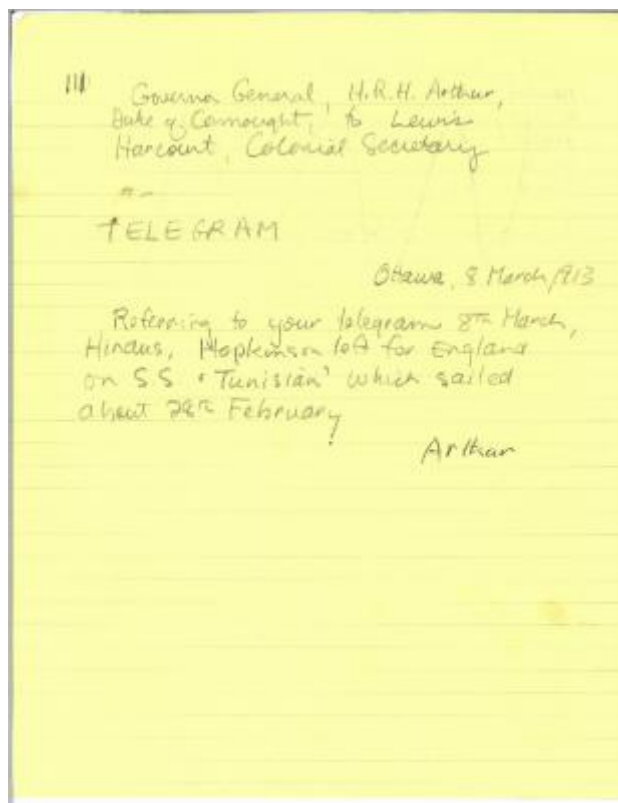 111
Governor General, H.R.H. Arthur,
Duke of Connaught, to Lewis
Harcourt, Colonial Secretary
TELEGRAM
Ottawa, 8 March 1913
Referring to your telegram 8th March,
Hindus, Hopkinson left for England
on SS "Tunisian" which sailed
about 28th February
Arthur